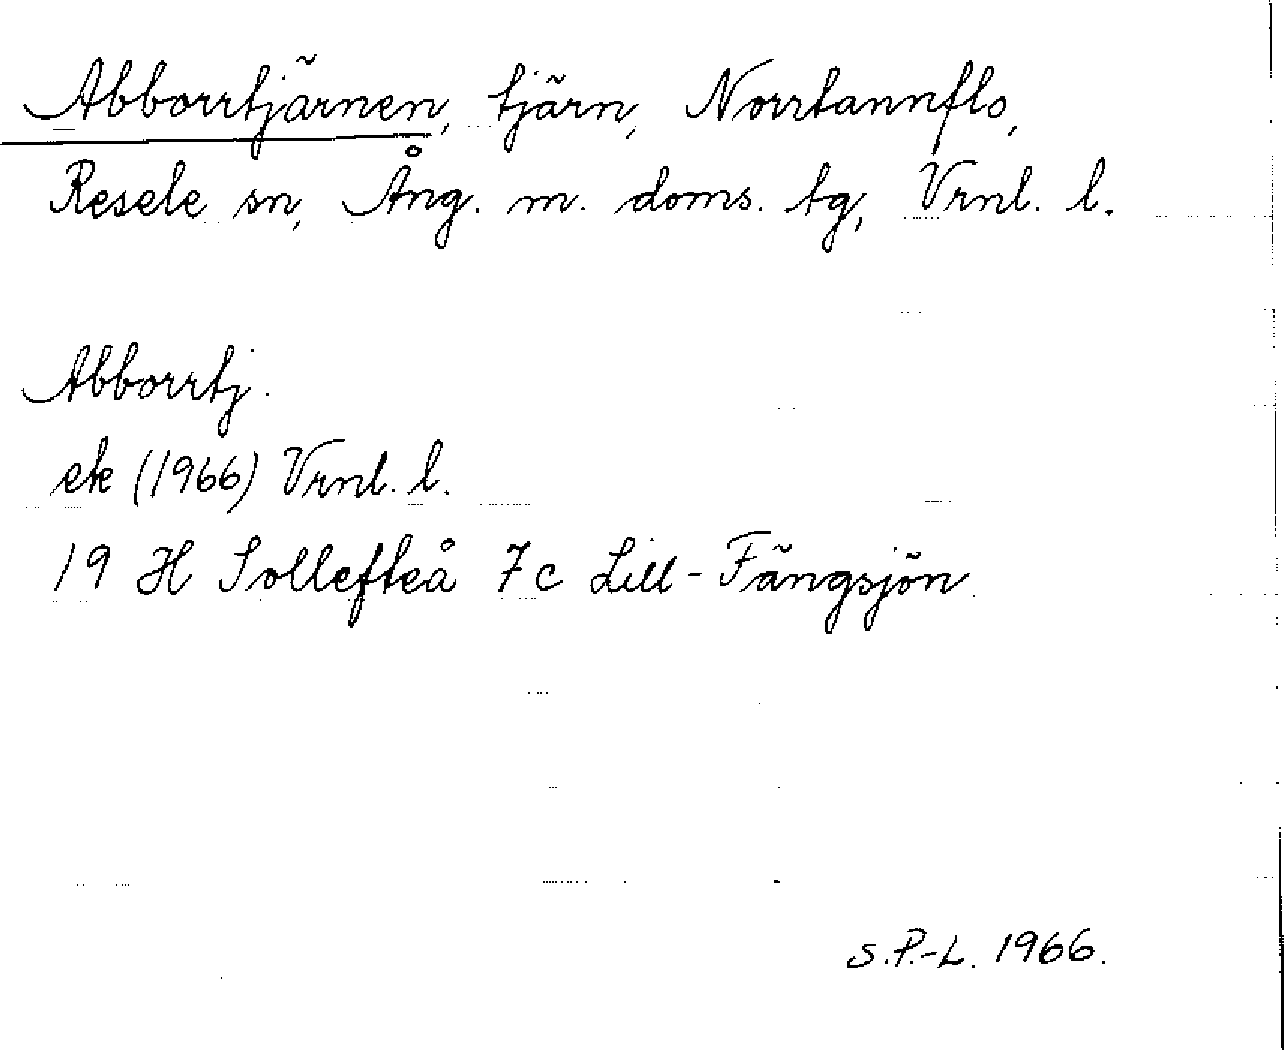 Abborrtjärnen, tjärn, Norrtannflo,
Resele sn, Ång. m. doms. tg, Vrnl. l.
Abborrtj.
ek (1966) Vrnl. l.
19 H Sollefteå 7c Lill-Fängsjön.
S.P.-L. 1966.